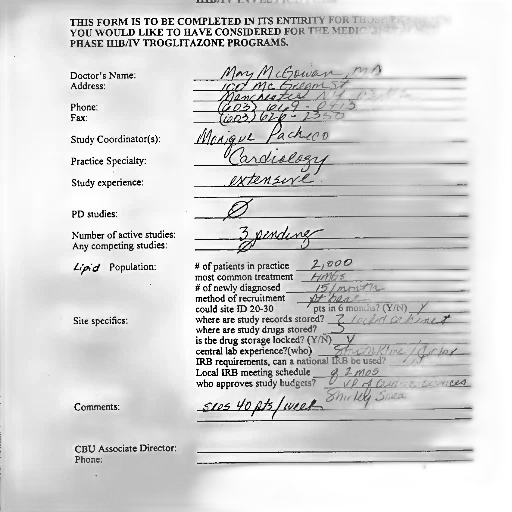 THIS FORM IS TO BE COMPLETED IN ITS ENTIRITY FOR
YOU WOULD LIKE TO HAVE CONSIDERED FOR THE
PHASE IIIB/IV TROGLITAZONE PROGRAMS.
Doctor's Name: Mary McGowan, MD
Address: 100 McGregor St
Manchester NH
Phone: (603) 669-0413
Fax: (603) 626-2350
Study Coordinator(s): Monique Pacheco
Practice Specialty: Cardiology
Study experience: extensive
PD studies: Ø
Number of active studies: 3 pending
Any competing studies: Ø
Lipid Population: # of patients in practice 2,000
most common treatment HMGs
# of newly diagnosed 15/month
method of recruitment pt base
could site ID 20-30 pts in 6 months? (Y/N) Y
Site specifics: where are study records stored? locked cabinet
where are study drugs stored?
is the drug storage locked? (Y/N) Y
central lab experience?(who)
IRB requirements, can a national IRB be used?
Local IRB meeting schedule q 2 mos
who approves study budgets? VP of services
Shirley
Comments: sees 40 pts/week
CBU Associate Director:
Phone: